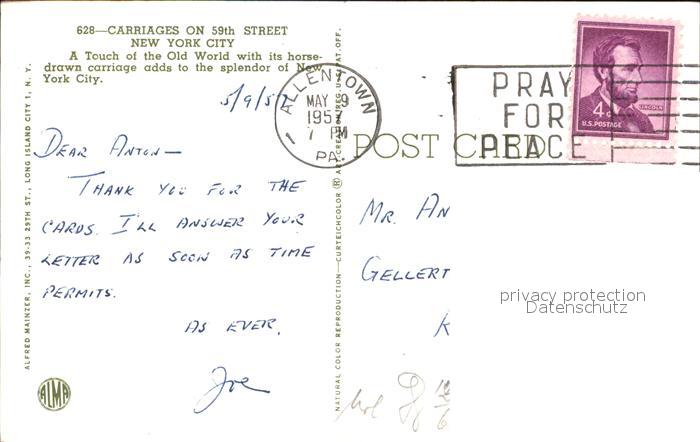 628—CARRIAGES ON 59th STREET
NEW YORK CITY
A Touch of the Old World with its horse-
drawn carriage adds to the splendor of New
York City.
5/9/57
DEAR ANTON—
THANK YOU FOR THE
CARDS. I'LL ANSWER YOUR
LETTER AS SOON AS TIME
PERMITS.
AS EVER,
Joe
ALMA
ALFRED MAINZER, INC., 39-33 29TH ST., LONG ISLAND CITY 1, N. Y.
NATURAL COLOR REPRODUCTION—CURTEICHCOLOR ® ART-CREATION REG. U.S. PAT. OFF.
ALLENTOWN
MAY 9
1957
7 PM
PA.
PRAY
FOR
PEACE
4¢
LINCOLN
U.S. POSTAGE
POST CARD
MR. AN
GELLERT
K
privacy protection
Datenschutz